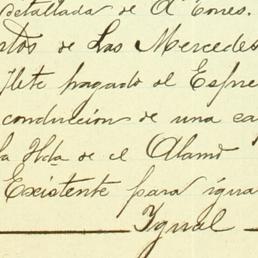 detallada de A. Torres.
ntos de Las Mercedes
Flete pagado al Espre
conduccion de una ca
la Hda de el Alamo
Existente para igua
Igual